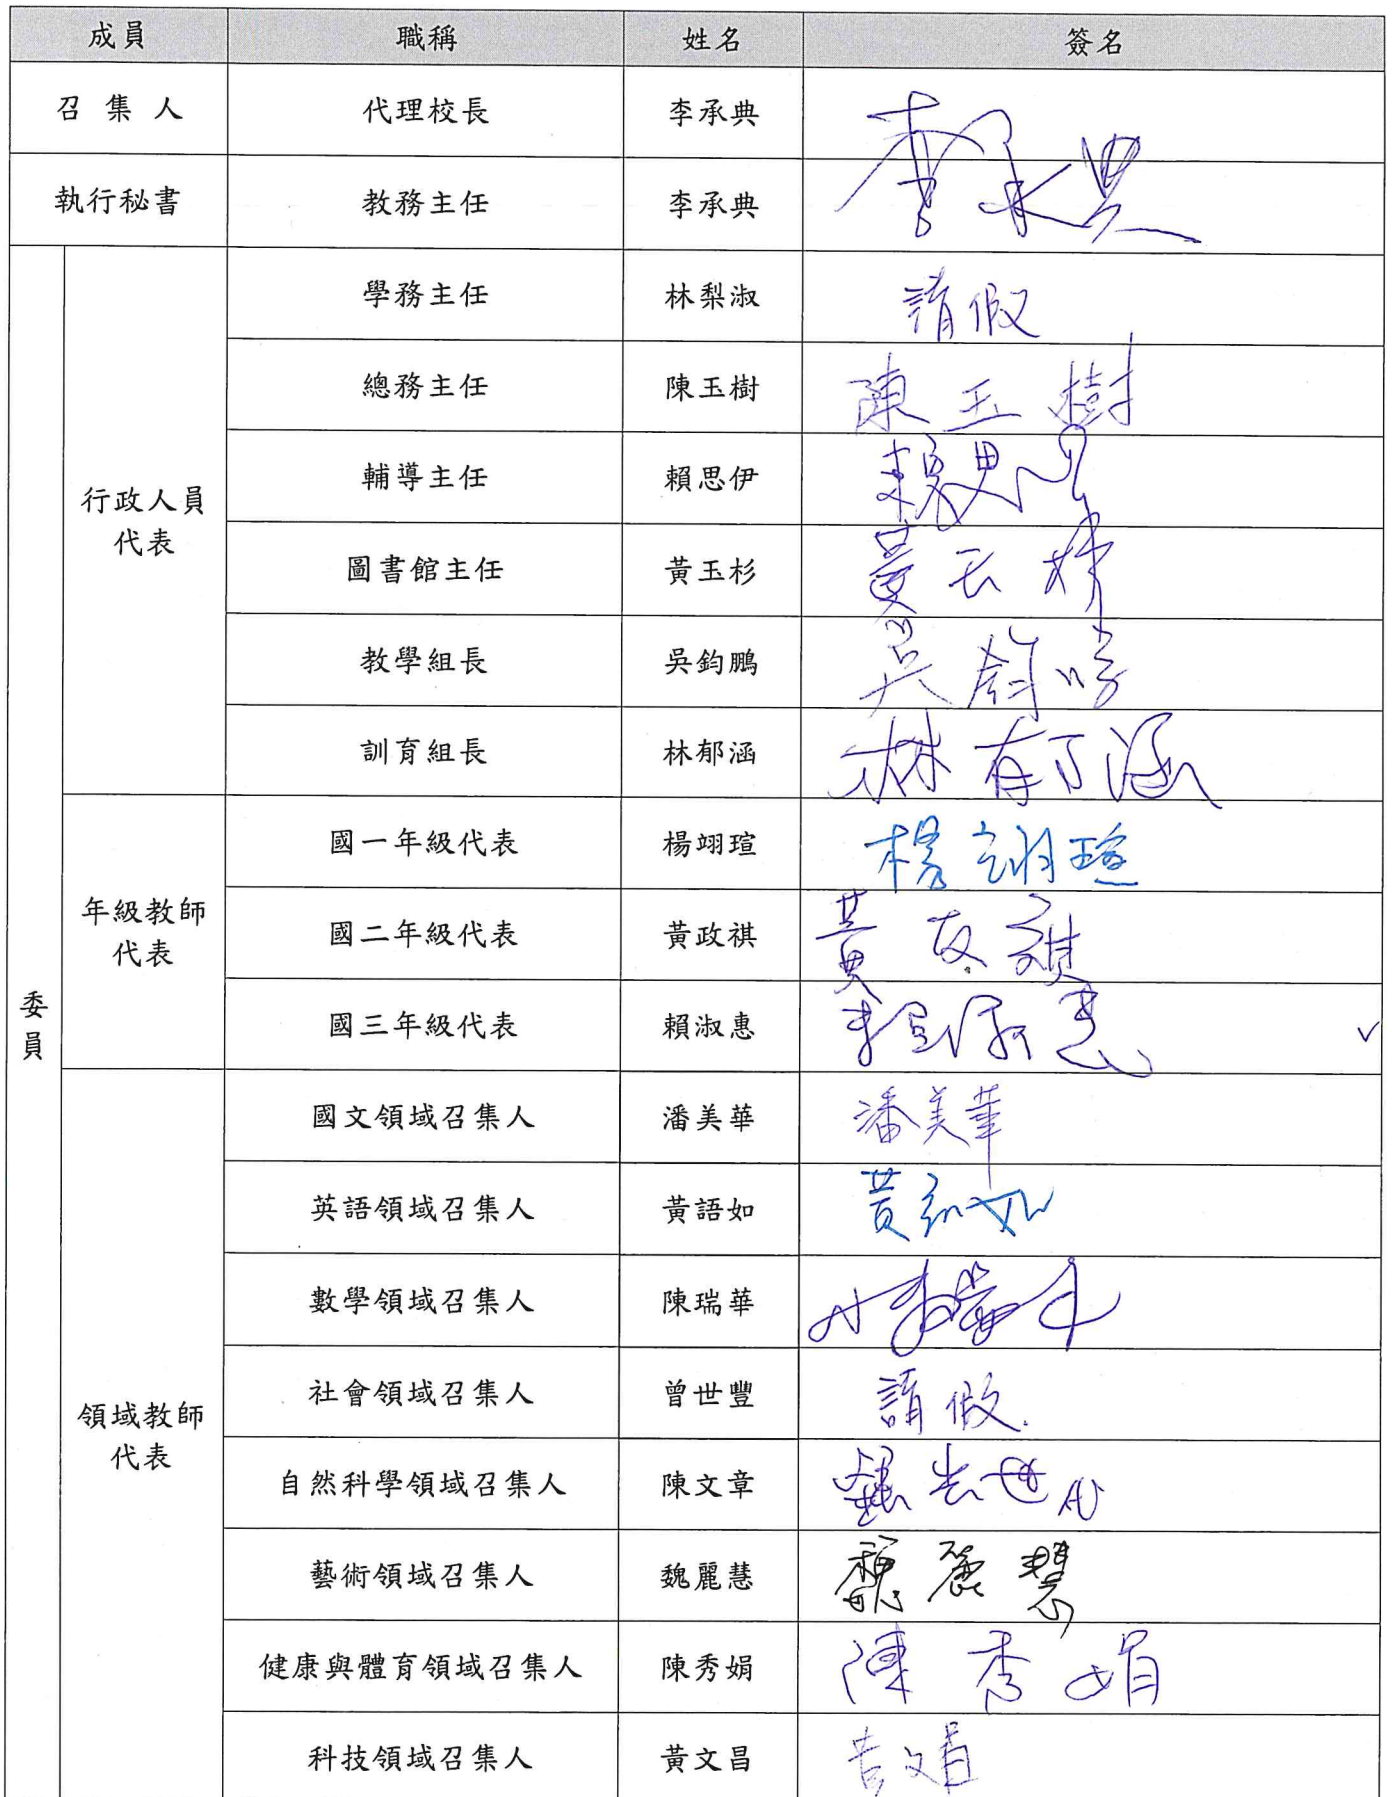 成員 職稱 姓名 簽名
召集人 代理校長 李承典 李承典
執行秘書 教務主任 李承典
委員
行政人員代表
學務主任 林梨淑 請假
總務主任 陳玉樹 陳玉樹
輔導主任 賴思伊 賴思伊
圖書館主任 黃玉杉 黃玉杉
教學組長 吳鈞鵬 吳鈞鵬
訓育組長 林郁涵 林郁涵
年級教師代表
國一年級代表 楊翊瑄 楊翊瑄
國二年級代表 黃政祺 黃政祺
國三年級代表 賴淑惠 賴淑惠
領域教師代表
國文領域召集人 潘美華 潘美華
英語領域召集人 黃語如 黃語如
數學領域召集人 陳瑞華 陳瑞華
社會領域召集人 曾世豐 請假
自然科學領域召集人 陳文章
藝術領域召集人 魏麗慧 魏麗慧
健康與體育領域召集人 陳秀娟 陳秀娟
科技領域召集人 黃文昌 黃文昌